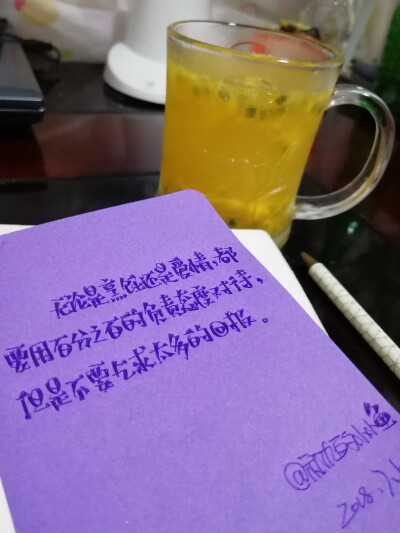 无论是烹饪还是爱情,都
要用百分之百的负责态度对待,
但是不要乞求太多的回报。
2018.